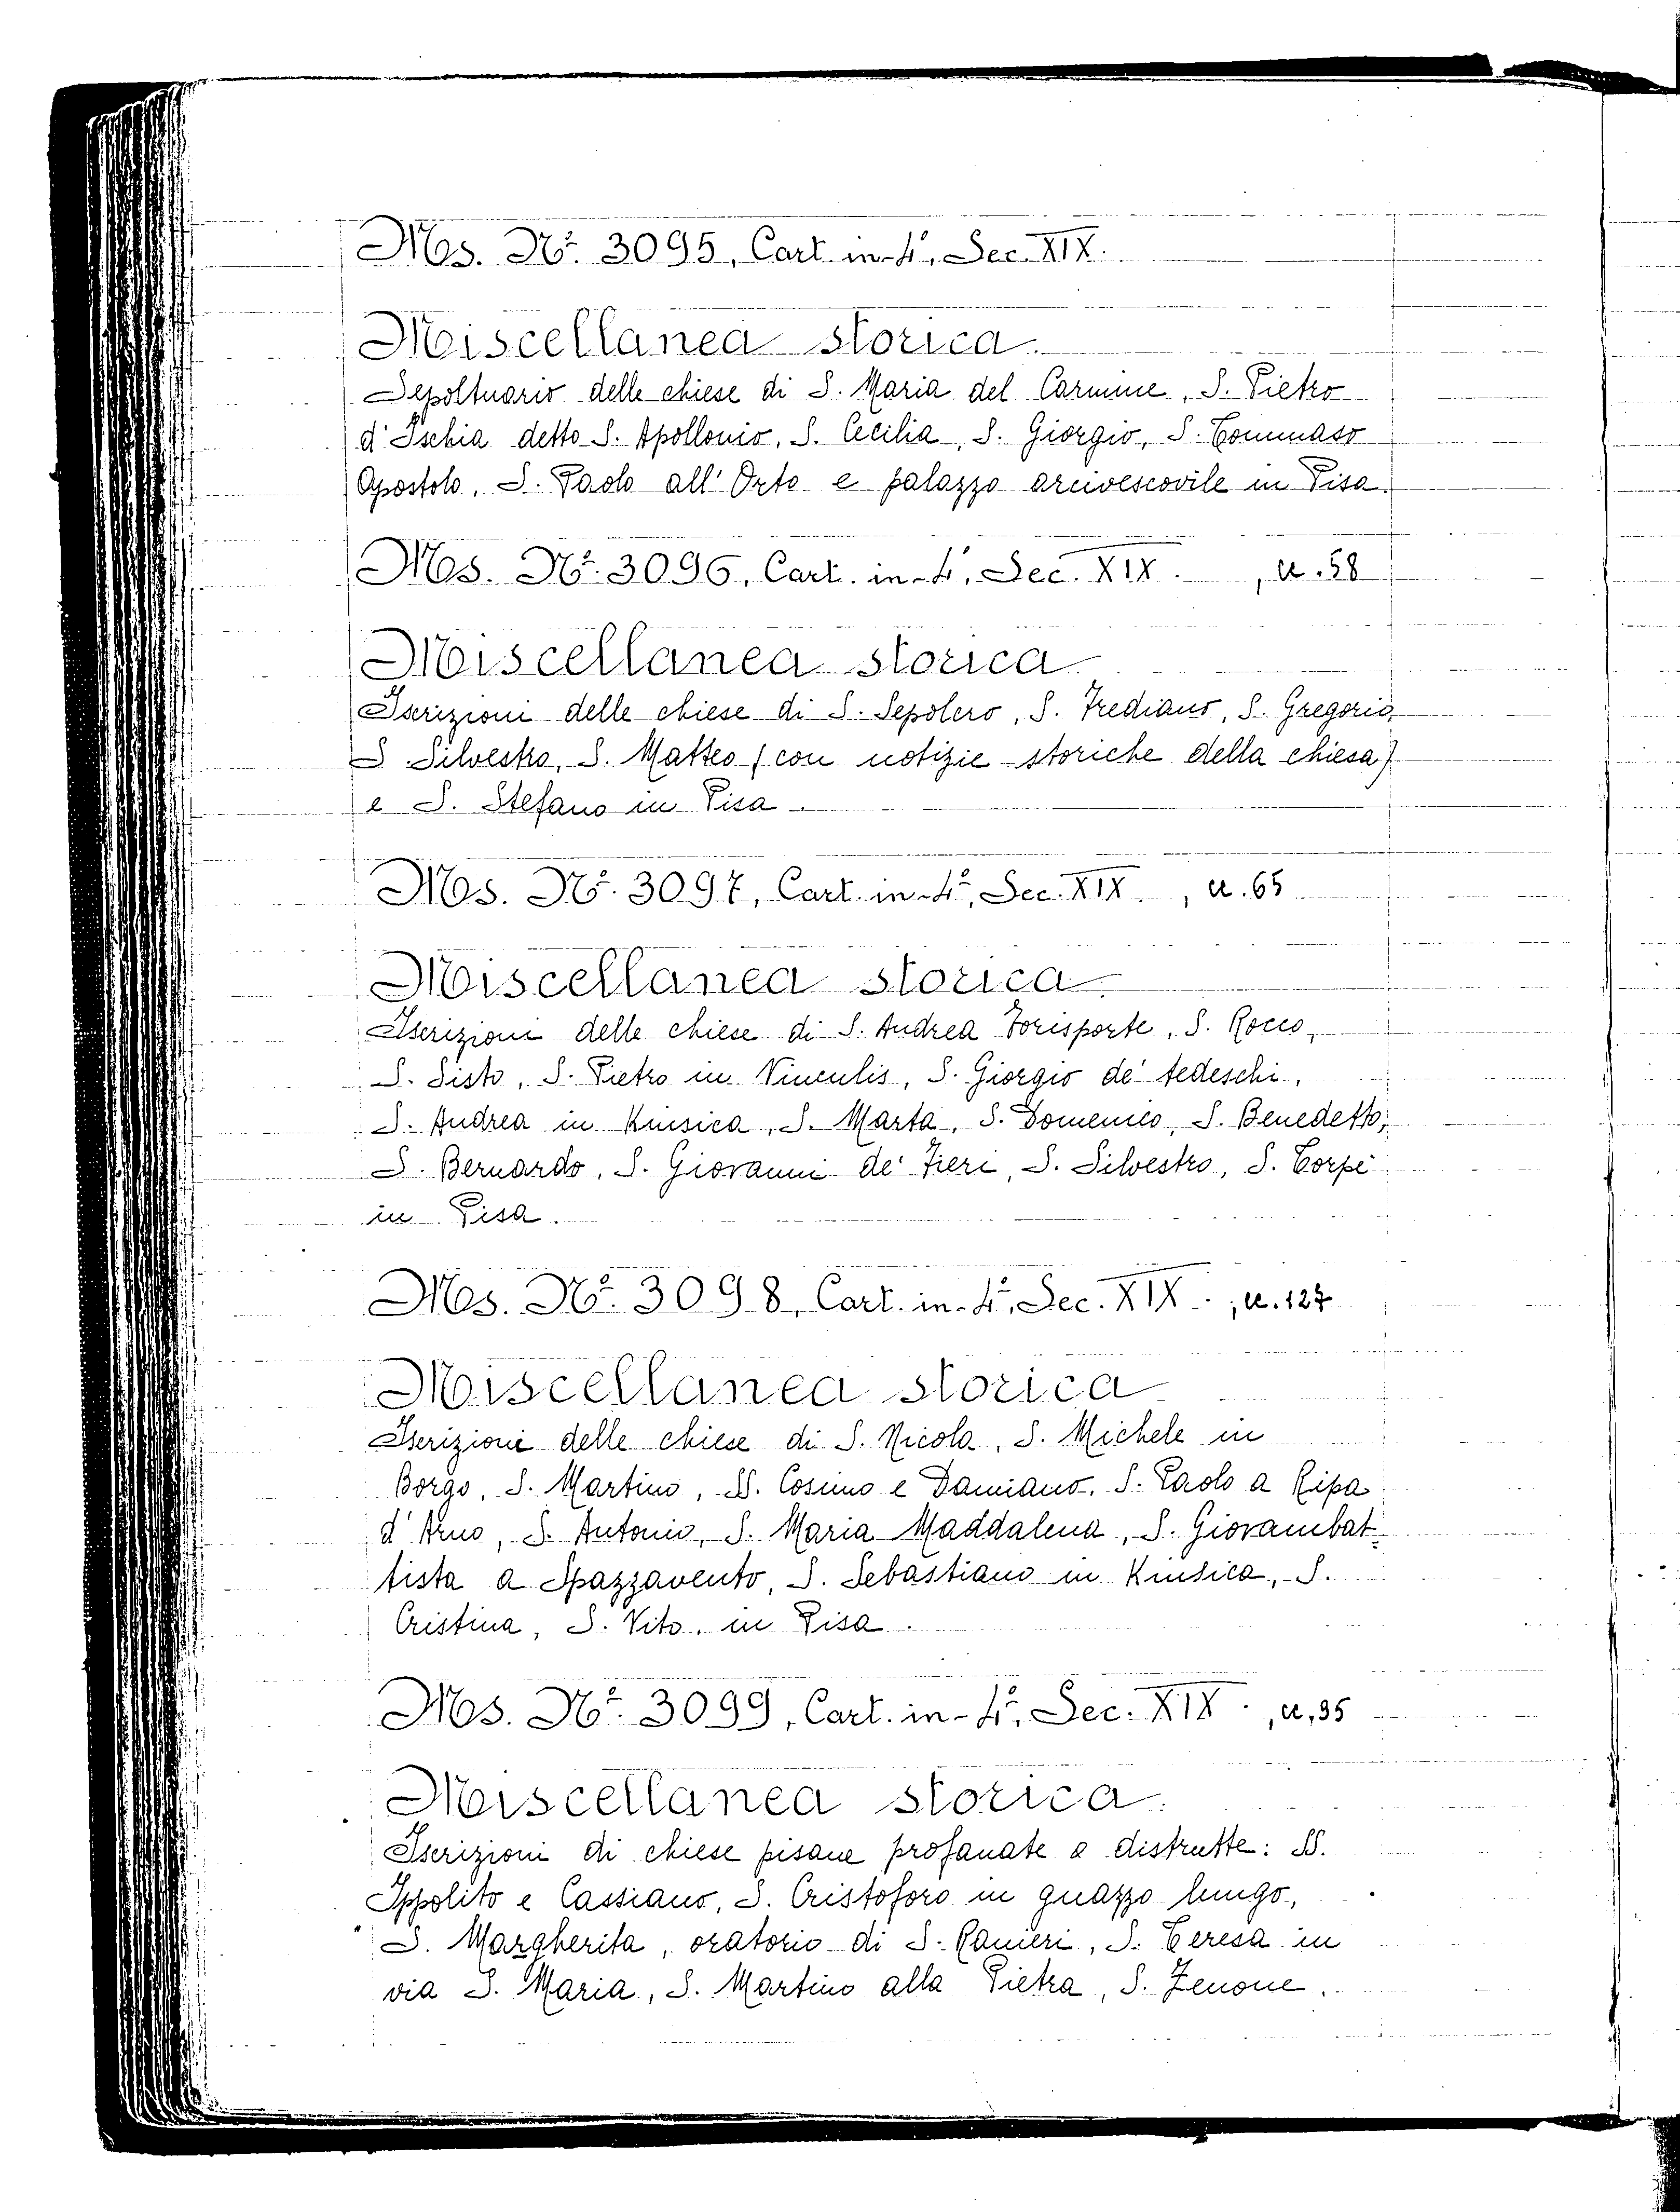 Ms. Nº. 3095, Cart. in-4º, Sec. XIX.
Miscellanea storica.
Sepoltuario delle chiese di S. Maria del Carmine, S. Pietro
d'Ischia detto S. Apollonio, S. Cecilia, S. Giorgio, S. Tommaso
Apostolo, S. Paolo all'Orto e palazzo arcivescovile in Pisa.
Ms. Nº. 3096, Cart. in-4º, Sec. XIX. , cc. 58
Miscellanea storica.
Iscrizioni delle chiese di S. Sepolcro, S. Frediano, S. Gregorio,
S. Silvestro, S. Matteo (con notizie storiche della chiesa)
e S. Stefano in Pisa.
Ms. Nº. 3097, Cart. in-4º, Sec. XIX. , cc. 65
Miscellanea storica.
Iscrizioni delle chiese di S. Andrea Forisporte, S. Rocco,
S. Sisto, S. Pietro in Vinculis, S. Giorgio de' tedeschi,
S. Andrea in Kinsica, S. Marta, S. Domenico, S. Benedetto,
S. Bernardo, S. Giovanni de' Fieri, S. Silvestro, S. Torpè
in Pisa.
Ms. Nº. 3098, Cart. in-4º, Sec. XIX. , cc. 127
Miscellanea storica
Iscrizioni delle chiese di S. Nicola, S. Michele in
Borgo, S. Martino, SS. Cosimo e Damiano, S. Paolo a Ripa
d'Arno, S. Antonio, S. Maria Maddalena, S. Giovambat-
tista a Spazzavento, S. Sebastiano in Kinsica, S.
Cristina, S. Vito, in Pisa.
Ms. Nº. 3099, Cart. in-4º, Sec. XIX. , cc. 95
Miscellanea storica.
Iscrizioni di chiese pisane profanate o distrutte: SS.
Ippolito e Cassiano, S. Cristoforo in guazzo lungo,
S. Margherita, oratorio di S. Ranieri, S. Teresa in
via S. Maria, S. Martino alla Pietra, S. Zenone.